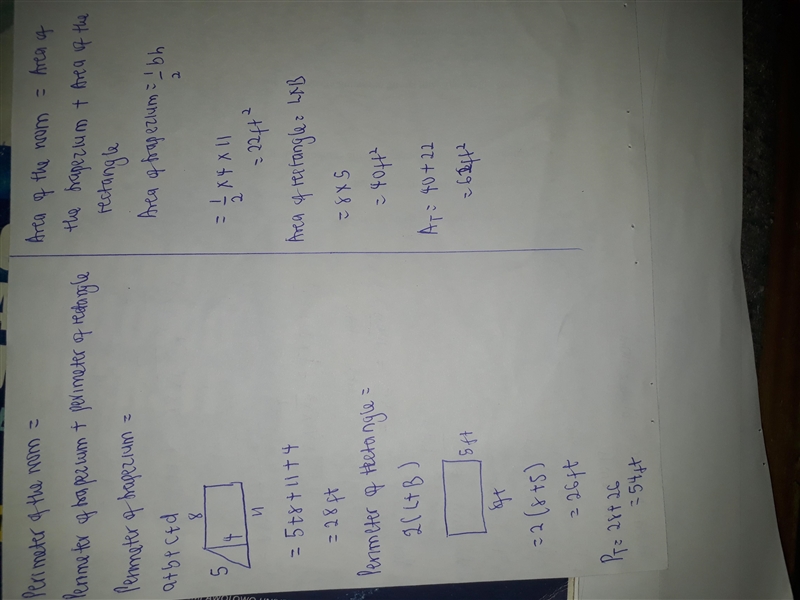 Perimeter of the room =
Perimeter of trapezium + perimeter of rectangle
Perimeter of trapezium =
a+b+c+d
8
5
4
11
= 5+8+11+4
= 28ft
Perimeter of rectangle =
2(L+B)
5ft
8ft
= 2(8+5)
= 26ft
PT = 28+26
= 54ft
Area of the room = Area of
the trapezium + Area of the
rectangle
Area of trapezium = 1/2 bh
= 1/2 x 4 x 11
= 22ft²
Area of rectangle = LxB
= 8 x 5
= 40ft²
AT = 40+22
= 62ft²